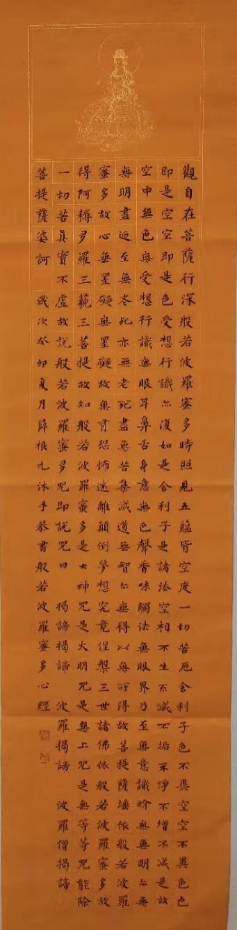 觀自在菩薩行深般若波羅蜜多時照見五蘊皆空度一切苦厄舍利子色不異空空不異色色
即是空空即是色受想行識亦復如是舍利子是諸法空相不生不滅不垢不淨不增不減是故
空中無色無受想行識無眼耳鼻舌身意無色聲香味觸法無眼界乃至無意識界無無明亦無
無明盡乃至無老死亦無老死盡無苦集滅道無智亦無得以無所得故菩提薩埵依般若波羅
蜜多故心無罣礙無罣礙故無有恐怖遠離顛倒夢想究竟涅槃三世諸佛依般若波羅蜜多故
得阿耨多羅三藐三菩提故知般若波羅蜜多是大神咒是大明咒是無上咒是無等等咒能除
一切苦真實不虛故說般若波羅蜜多咒即說咒曰 揭諦揭諦 波羅揭諦 波羅僧揭諦
菩提薩婆訶 歲次癸卯夏月薛根九沐手恭書般若波羅蜜多心經